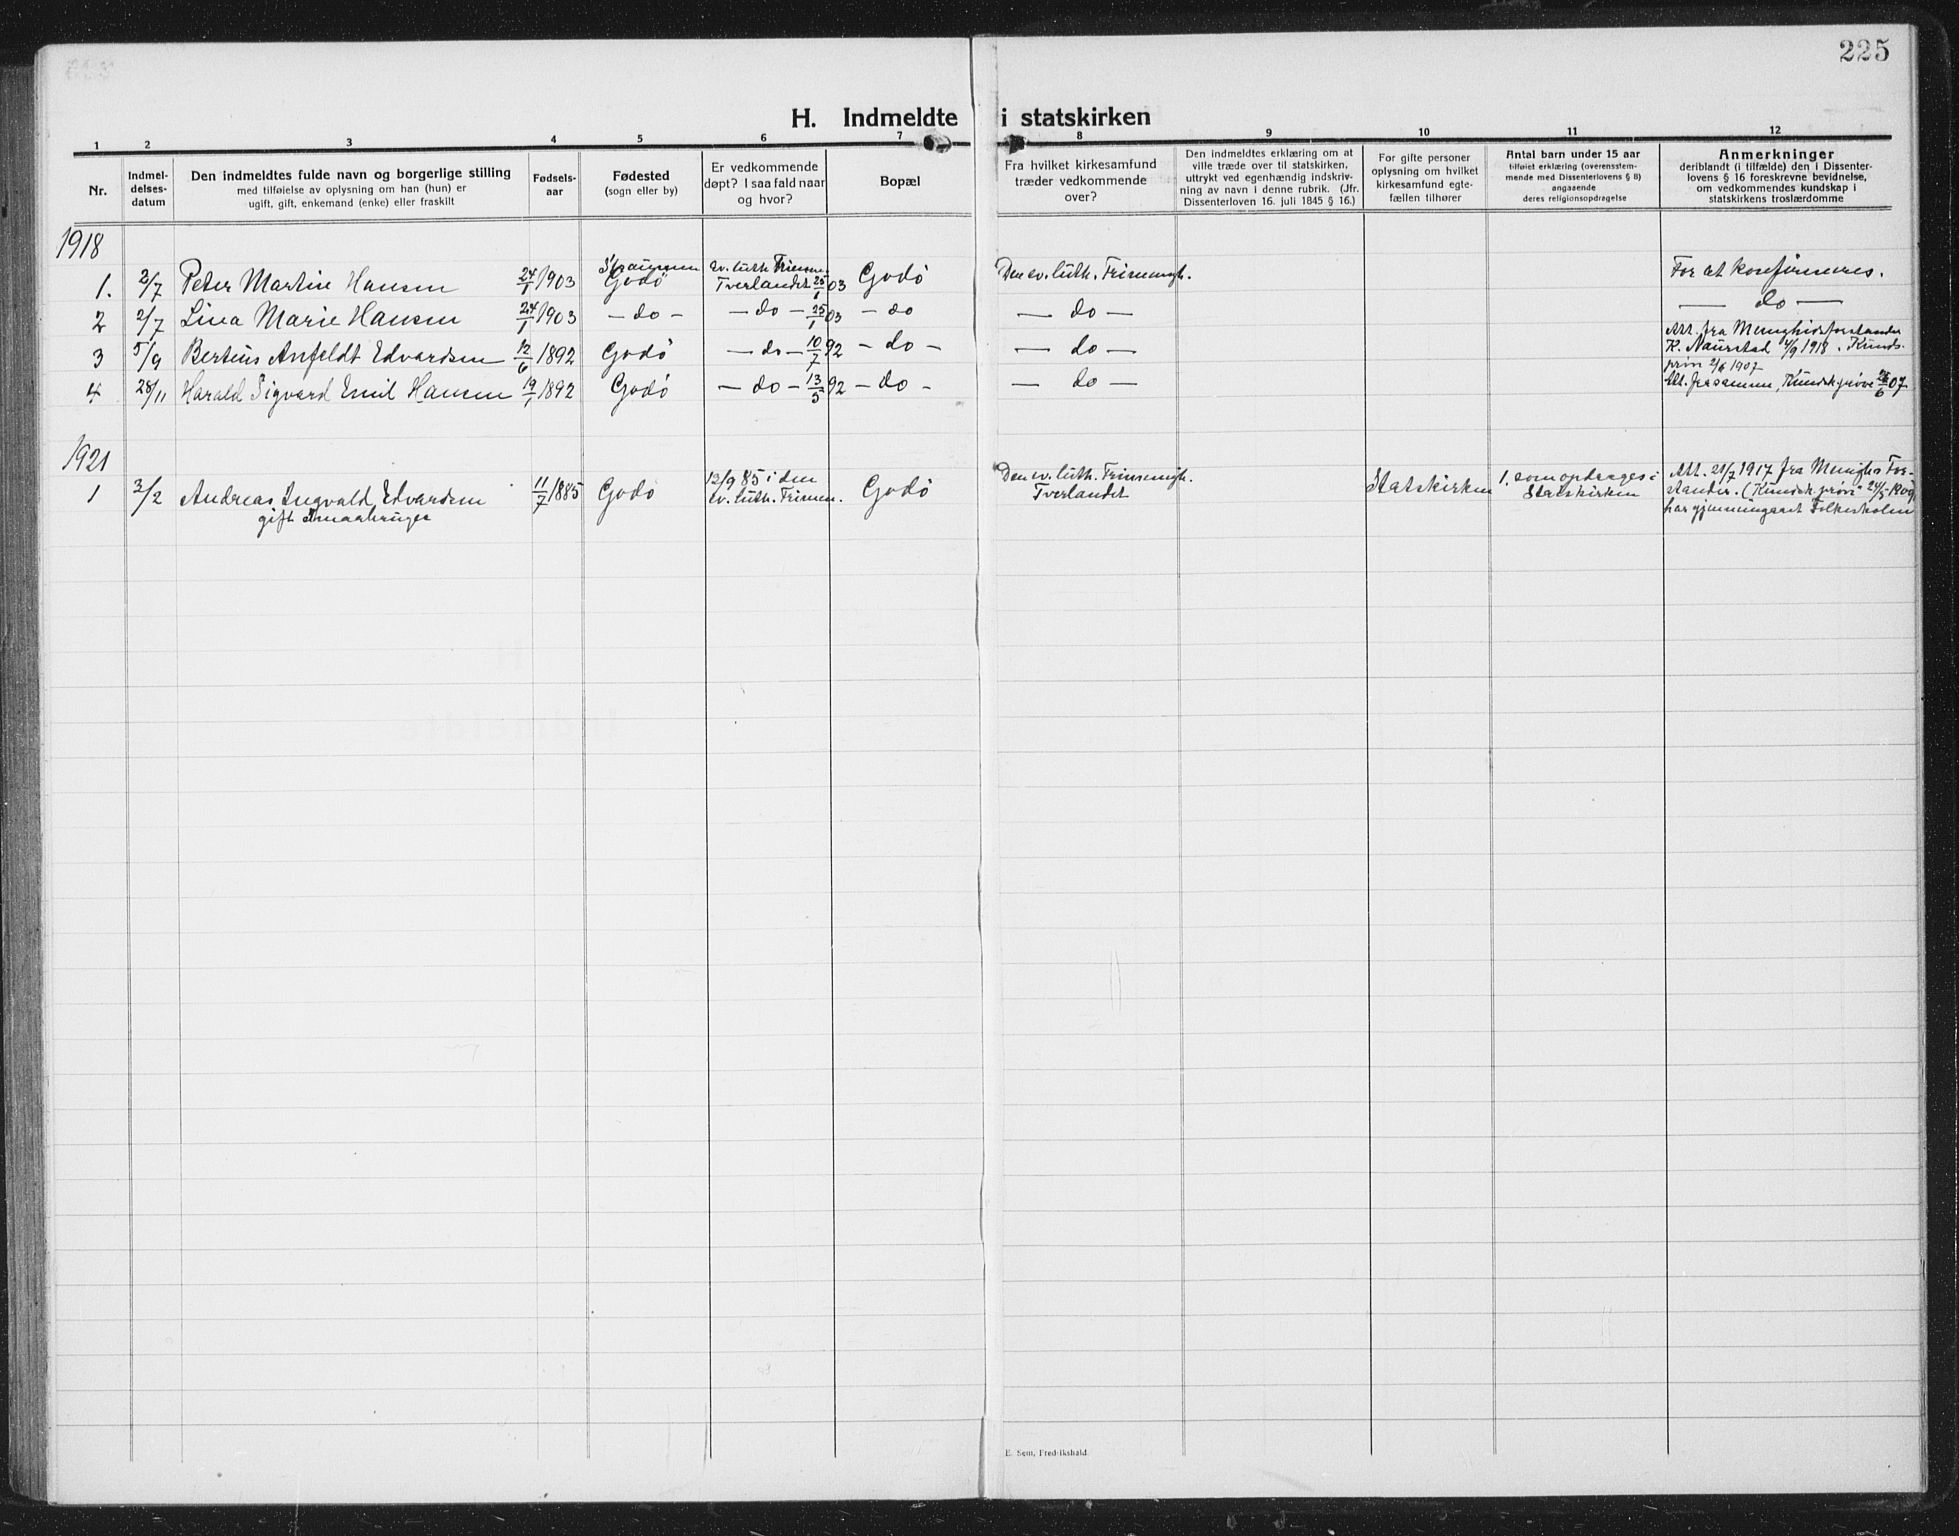 225
H. Indmeldte i statskirken
1 2 3 4 5 6 7 8 9 10 11 12
Nr.
Indmel-
delses-
datum
Den indmeldtes fulde navn og borgerlige stilling
med tilføielse av oplysning om han (hun) er
ugift, gift, enkemand (enke) eller fraskilt
Fødsels-
aar
Fødested
(sogn eller by)
Er vedkommende
døpt? I saa fald naar
og hvor?
Bopæl
Fra hvilket kirkesamfund
træder vedkommende
over?
Den indmeldtes erklæring om at
ville træde over til statskirken,
uttrykt ved egenhændig indskriv-
ning av navn i denne rubrik. (Jfr.
Dissenterloven 16. juli 1845 § 16.)
For gifte personer
oplysning om hvilket
kirkesamfund egte-
fællen tilhører
Antal barn under 15 aar
tilføiet erklæring (overensstem-
mende med Dissenterlovens § 8)
angaaende
deres religionsopdragelse
Anmerkninger
deriblandt (i tilfælde) den i Dissenter-
lovens § 16 foreskrevne bevidnelse,
om vedkommendes kundskap i
statskirkens troslærdomme
1918
1. 2/7 Peter Martin Hansen 24/1 1903 Godø ev. luth. Frimen. Tverlandet 25/1 03 Godø Den ev. luth. Frimengh. For at konfirmeres.
2 2/7 Lina Marie Hansen 24/1 1903 - do - - do - 25/1 03 - do - do - - do -
3 5/9 Bertius Anfeldt Edvardsen 12/6 1892 Godø - do - 10/7 92 - do - - do - Att. fra Menighedsforstander
K. Naurstad 4/9 1918. Kunds-
prøv 2/6 1907
4 28/11 Harald Sigvard Emil Hansen 19/1 1892 Godø - do - 13/5 92 - do - - do - Att. fra samme, Kundsk.prøve 26/6 07
1921
1 3/2 Andreas Ingvald Edvardsen 11/7 1885 Godø 13/9 85 i den Godø Den ev. luth. Frimengh. Statskirken 1. som opdrages i Att. 21/7 1917 fra Menighs For-
gift Smaabruger ev. luth. Frimen. Tverlandet Statskirken stander. (Kundsk.prøv 24/5 1909,
har gjennemgaaet Folkeskolen
E. Sem, Fredrikshald.